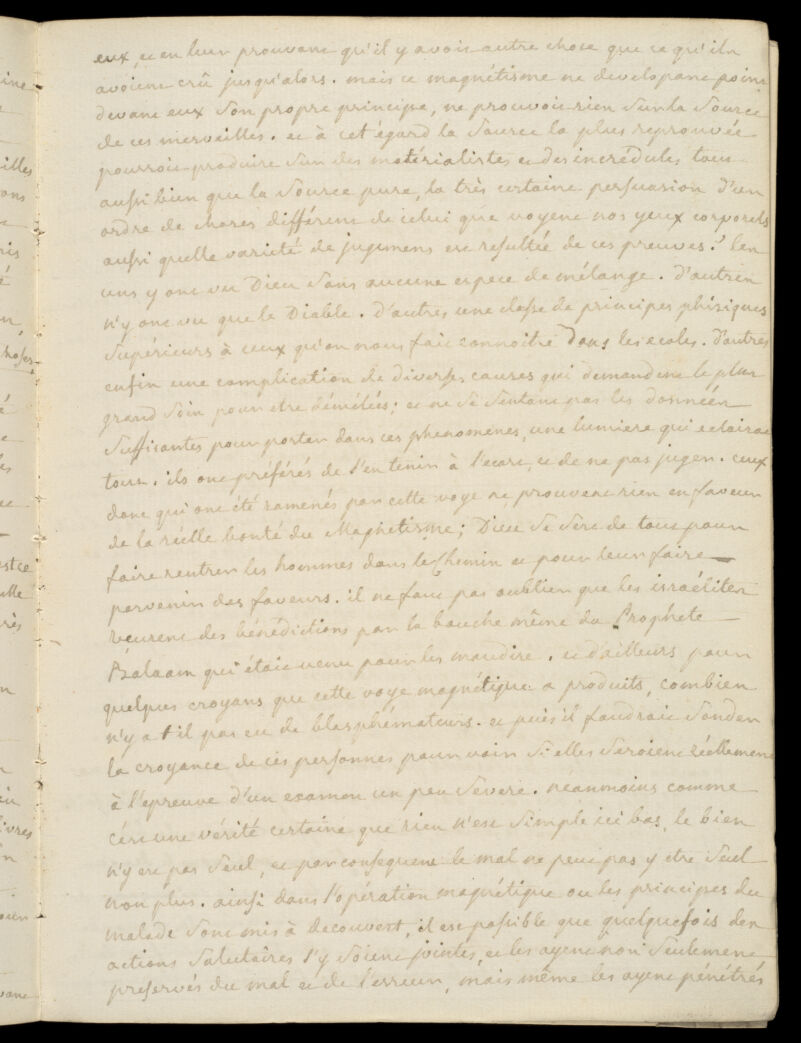 eux, et en leur prouvant qu'il y avoit autre chose que ce qu'ils
avoient crû jusqu'alors. mais ce magnétisme ne developant point
devant eux son propre principe, ne prouvoit rien sur la source
de ces merveilles. et à cet égard la source la plus reprouvée
pourroit produire sur des matérialistes et des incrédules, tout
aussi bien que la source pure, la très certaine persuasion d'un
ordre de choses différent de celui que voyent nos yeux corporels
aussi quelle varieté de jugemens est resultée de ces preuves? les
uns y ont vu Dieu sans aucune espece de mélange. D'autres
n'y ont vu que le Diable. D'autres une classe de principes phisiques
supérieurs à ceux qu'on nous fait connoitre dans les ecoles. D'autres
enfin une complication de diverses causes qui demandent le plus
grand soin pour etre démélées; et ne se sentant pas les données
suffisantes pour porter dans ces phenomenes, une lumiere qui eclairat
tout. ils ont préférés de s'en tenir à l'ecart, et de ne pas juger. ceux
donc qui ont été ramenés par cette voye ne prouvent rien en faveur
de la réelle bonté du Magnetisme; Dieu se sert de tout pour
faire rentrer les hommes dans le Chemin et pour leur faire
parvenir des faveurs. il ne faut pas oublier que les israélites
reçurent des bénédictions par la bouche même du Prophete
Balaam qui étoit venu pour les maudire. et d'ailleurs pour
quelques croyans que cette voye magnétique a produits, combien
n'y a t'il pas eu de blasphémateurs. et puis il faudroit sonder
la croyance de ces personnes pour voir si elles seroient réellement
à l'epreuve d'un examen un peu severe. néanmoins comme
c'est une vérité certaine que rien n'est simple ici bas, le bien
n'y est pas seul, et par consequent le mal ne peut pas y etre seul
non plus. ainsi dans l'opération magnétique ou les principes du
malade sont mis à decouvert, il est possible que quelquefois des
actions salutaires s'y soient jointes, et les ayent non seulement
preservés du mal et de l'erreur, mais même les ayent pénétrés